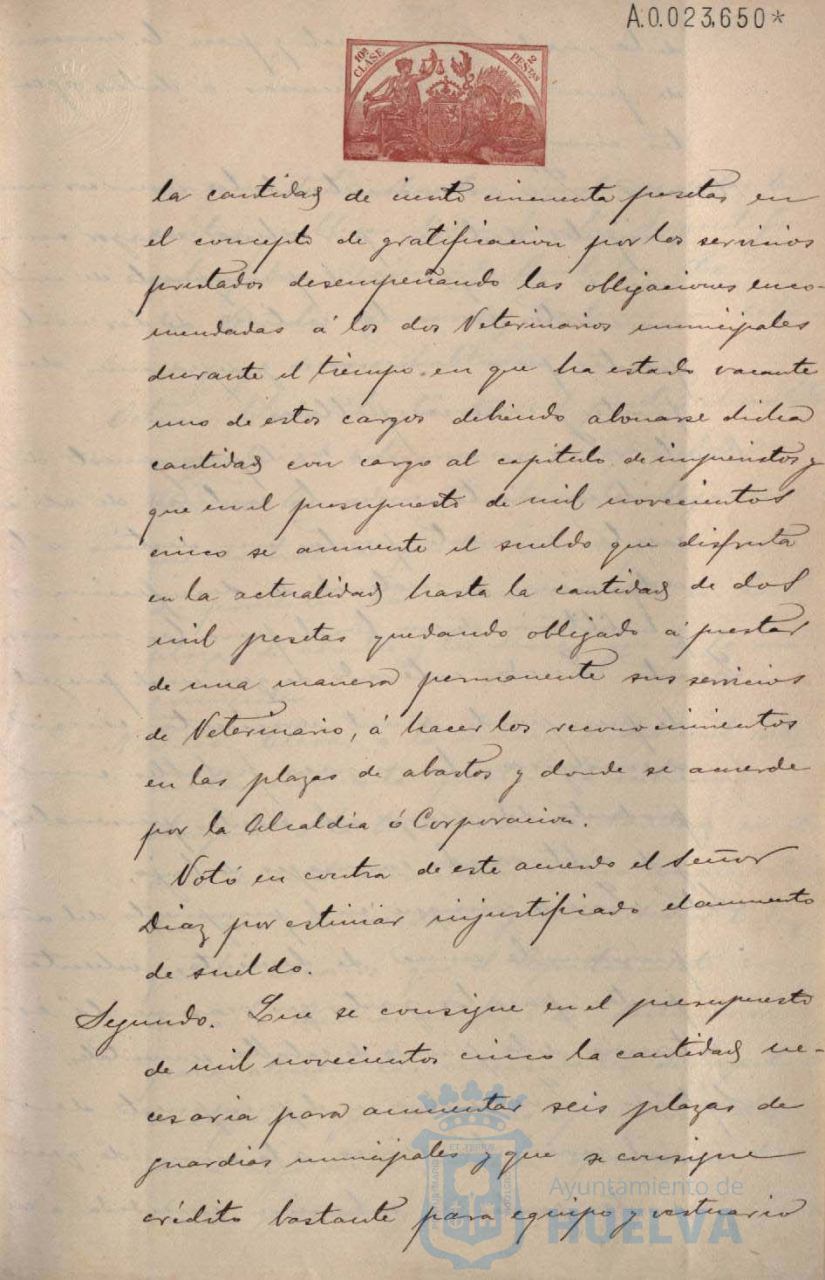 A.0.023,650*
10ª CLASE
2 PESETAS
la cantidad de ciento cincuenta pesetas en
el concepto de gratificacion por los servicios
prestados desempeñando las obligaciones enco-
mendadas á los dos Veterinarios municipales
durante el tiempo en que ha estado vacante
uno de estos cargos debiendo abonarse dicha
cantidad con cargo al capitulo de imprevistos y
que en el presupuesto de mil novecientos
cinco se aumente el sueldo que disfruta
en la actualidad hasta la cantidad de dos
mil pesetas quedando obligado á prestar
de una manera permanente sus servicios
de Veterinario, á hacer los reconocimientos
en las plazas de abastos y donde se acuerde
por la Alcaldia ó Corporacion.
Votó en contra de este acuerdo el Señor
Diaz por estimar injustificado el aumento
de sueldo.
Segundo. Que se consigne en el presupuesto
de mil novecientos cinco la cantidad ne-
cesaria para aumentar seis plazas de
guardias municipales y que se consigne
crédito bastante para equipo y vestuario
Ayuntamiento de
HUELVA